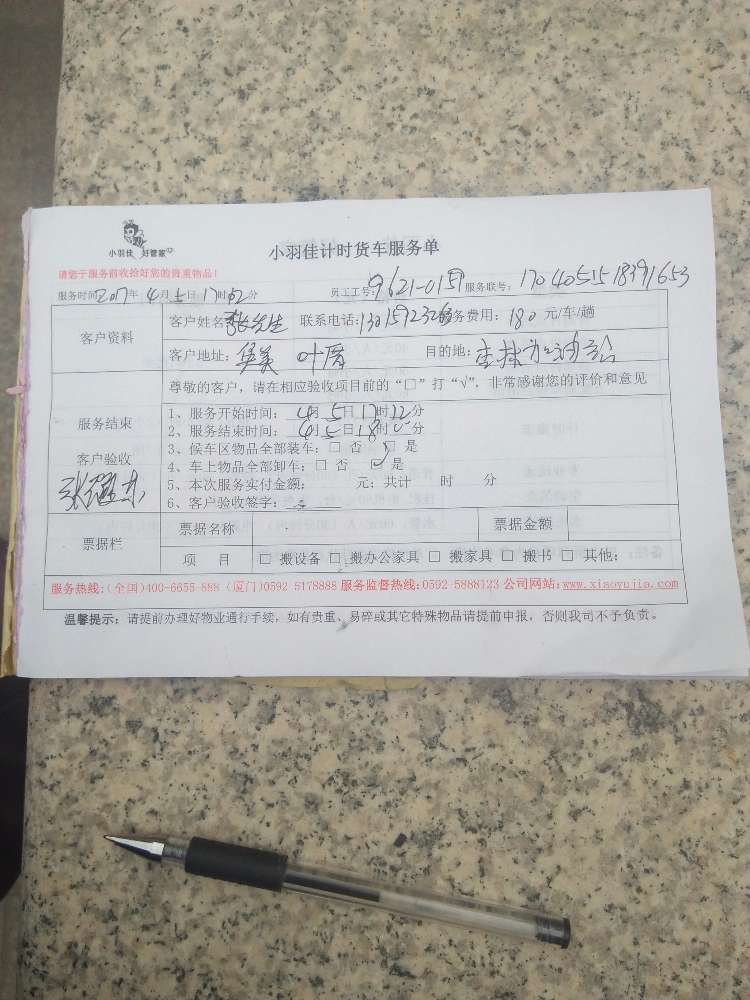 小羽佳 好管家
小羽佳计时货车服务单
请您于服务前收拾好您的贵重物品!
服务时间2017年4月5日17时02分 员工工号:9621-0159 服务联号:17040515518391653
客户资料
客户姓名 张先生 联系电话: 服务费用:180元/车/趟
客户地址: 叶厝 目的地:
尊敬的客户,请在相应验收项目前的“□”打“√”,非常感谢您的评价和意见
服务结束
客户验收
1、服务开始时间:4月5日17时12分
2、服务结束时间:4月5日18时 分
3、候车区物品全部装车:□ 否 □ 是
4、车上物品全部卸车:□ 否 ☑ 是
5、本次服务实付金额: 元;共计 时 分
6、客户验收签字:
票据栏
票据名称 票据金额
项 目 □ 搬设备 □ 搬办公家具 □ 搬家具 □ 搬书 □ 其他:
服务热线:(全国)400-6655-888 (厦门)0592 5178888 服务监督热线:0592 5888123 公司网站:www.xiaoyujia.com
温馨提示:请提前办理好物业通行手续,如有贵重、易碎或其它特殊物品请提前申报,否则我司不予负责。